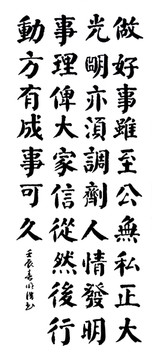 做好事雖至公無私正大
光明亦須調劑人情發明
事理俾大家信從然後行
動方有成事可久
壬辰春明